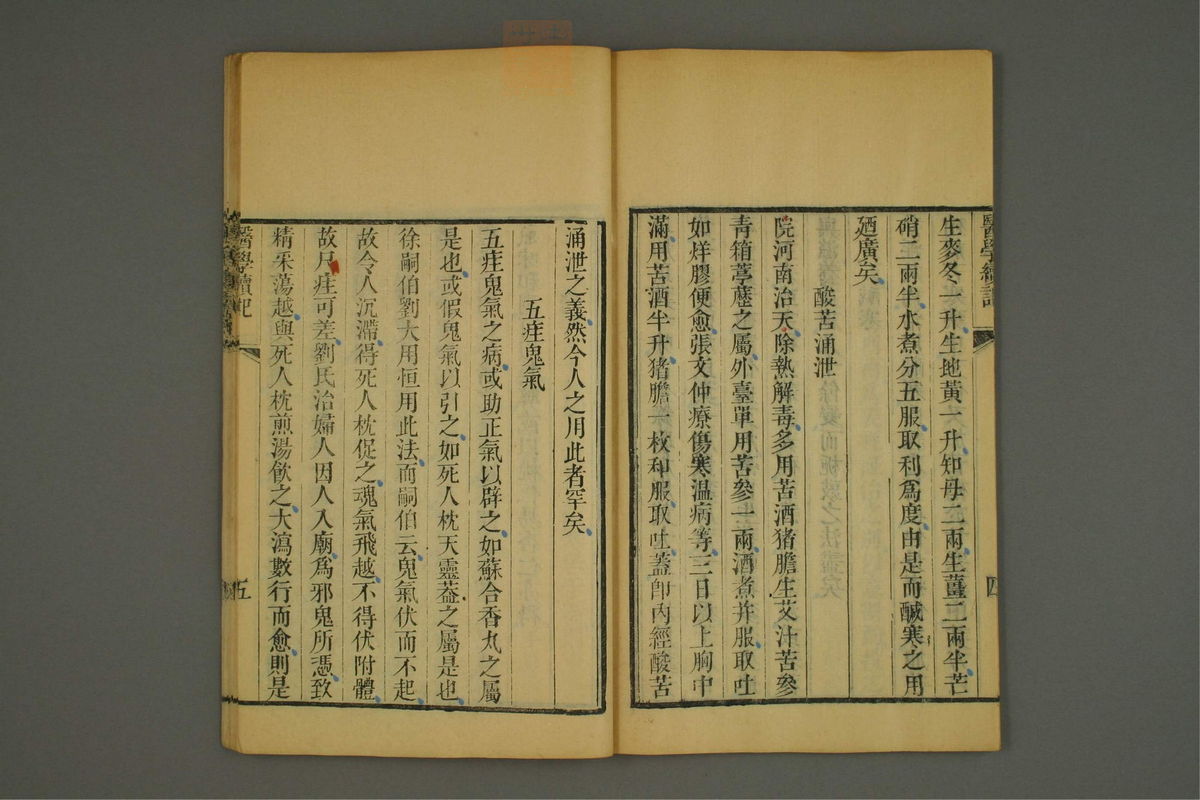 生麥冬一升生地黃一升知母二兩生薑二兩半芒
硝二兩半水煮分五服取利爲度由是而鹹寒之用
廼廣矣
酸苦涌泄
院河南治天除熱解毒多用苦酒猪膽生艾汁苦參
青箱葶藶之屬外臺單用苦參一兩酒煮并服取吐
如烊膠便愈張文仲療傷寒溫病等三日以上胸中
滿用苦酒半升猪膽一枚和服取吐蓋卽內經酸苦
涌泄之義然今人之用此者罕矣
五疰鬼氣
五疰鬼氣之病或助正氣以辟之如蘇合香丸之屬
是也或假鬼氣以引之如死人枕天靈葢之屬是也
徐嗣伯劉大用恒用此法而嗣伯云鬼氣伏而不起
故令人沉滯得死人枕促之魂氣飛越不得伏附體
故尸疰可差劉氏治婦人因人入廟爲邪鬼所憑致
精采蕩越與死人枕煎湯飲之大瀉數行而愈則是
醫學讀記
五